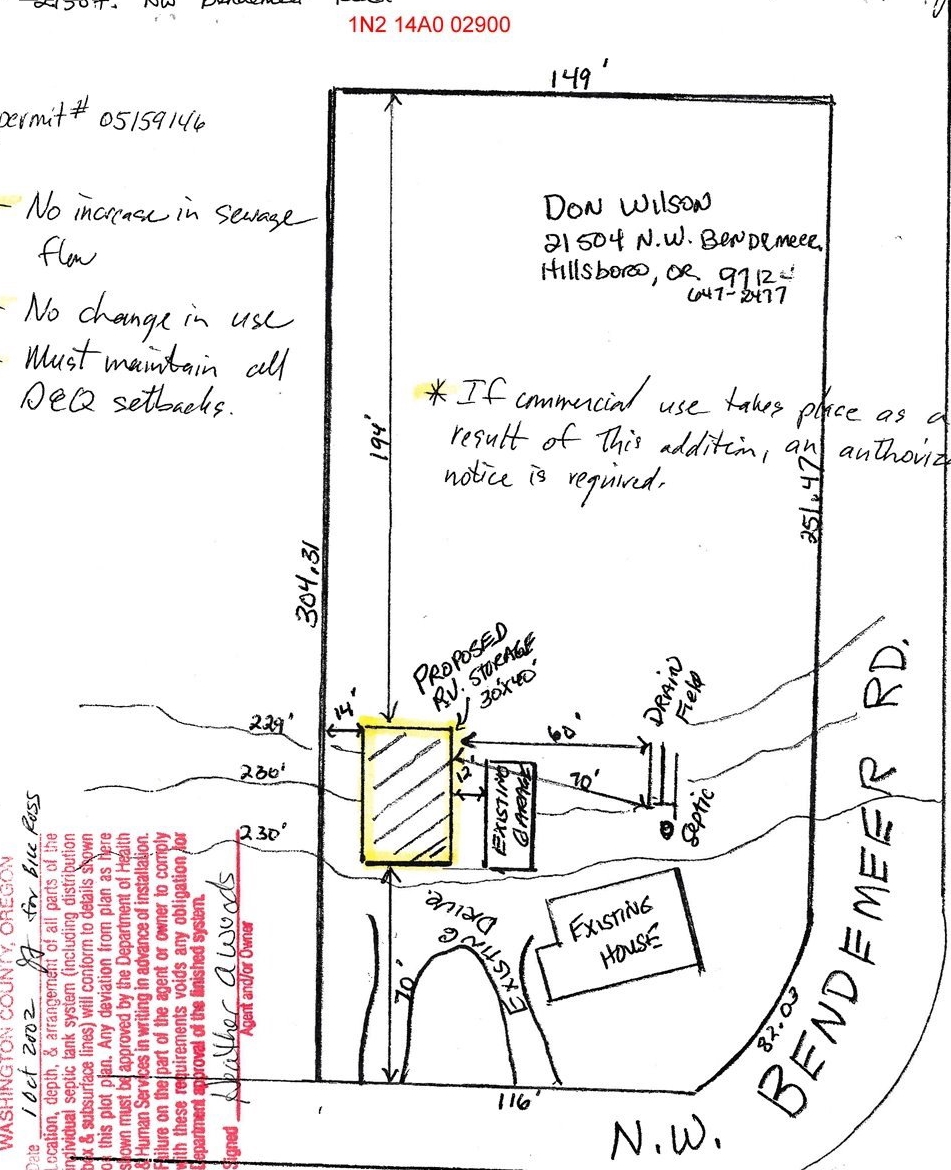 21504. NW Bendemeer Road
1N2 14A0 02900
149'
permit # 05159146
- No increase in sewage
flow
- No change in use
- Must maintain all
DEQ setbacks.
DON WILSON
21504 N.W. BENDEMEER
Hillsboro, OR 9712
647-2477
* If commercial use takes place as a
result of this addition, an authoriz
notice is required.
194'
251.47
304.31
PROPOSED
RV. STORAGE
30'X40'
14'
60'
DRAIN
Field
229'
230'
12'
70'
EXISTING
GARAGE
Septic
230'
EXISTING DRIVE
EXISTING
HOUSE
70'
82.03
116'
N.W. BENDEMEER RD.
WASHINGTON COUNTY, OREGON
Date 1 Oct 2002 for Bill Ross
Location, depth, & arrangement of all parts of the
individual septic tank system (including distribution
box & subsurface lines) will conform to details shown
on this plot plan. Any deviation from plan as here
shown must be approved by the Department of Health
& Human Services in writing in advance of installation.
Failure on the part of the agent or owner to comply
with these requirements voids any obligation for
Department approval of the finished system.
Signed Heather A Woods
Agent and/or Owner